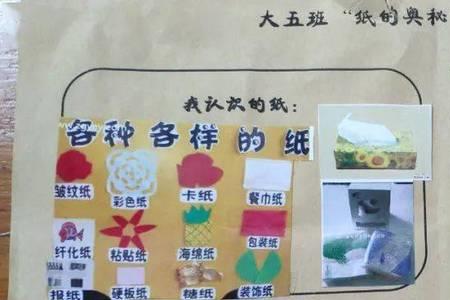 大五班 “纸的奥秘
我认识的纸：
各种各样的纸
皱纹纸 彩色纸 卡纸 餐巾纸
纤化纸 粘贴纸 海绵纸 包装纸
报纸 硬板纸 糖纸 装饰纸